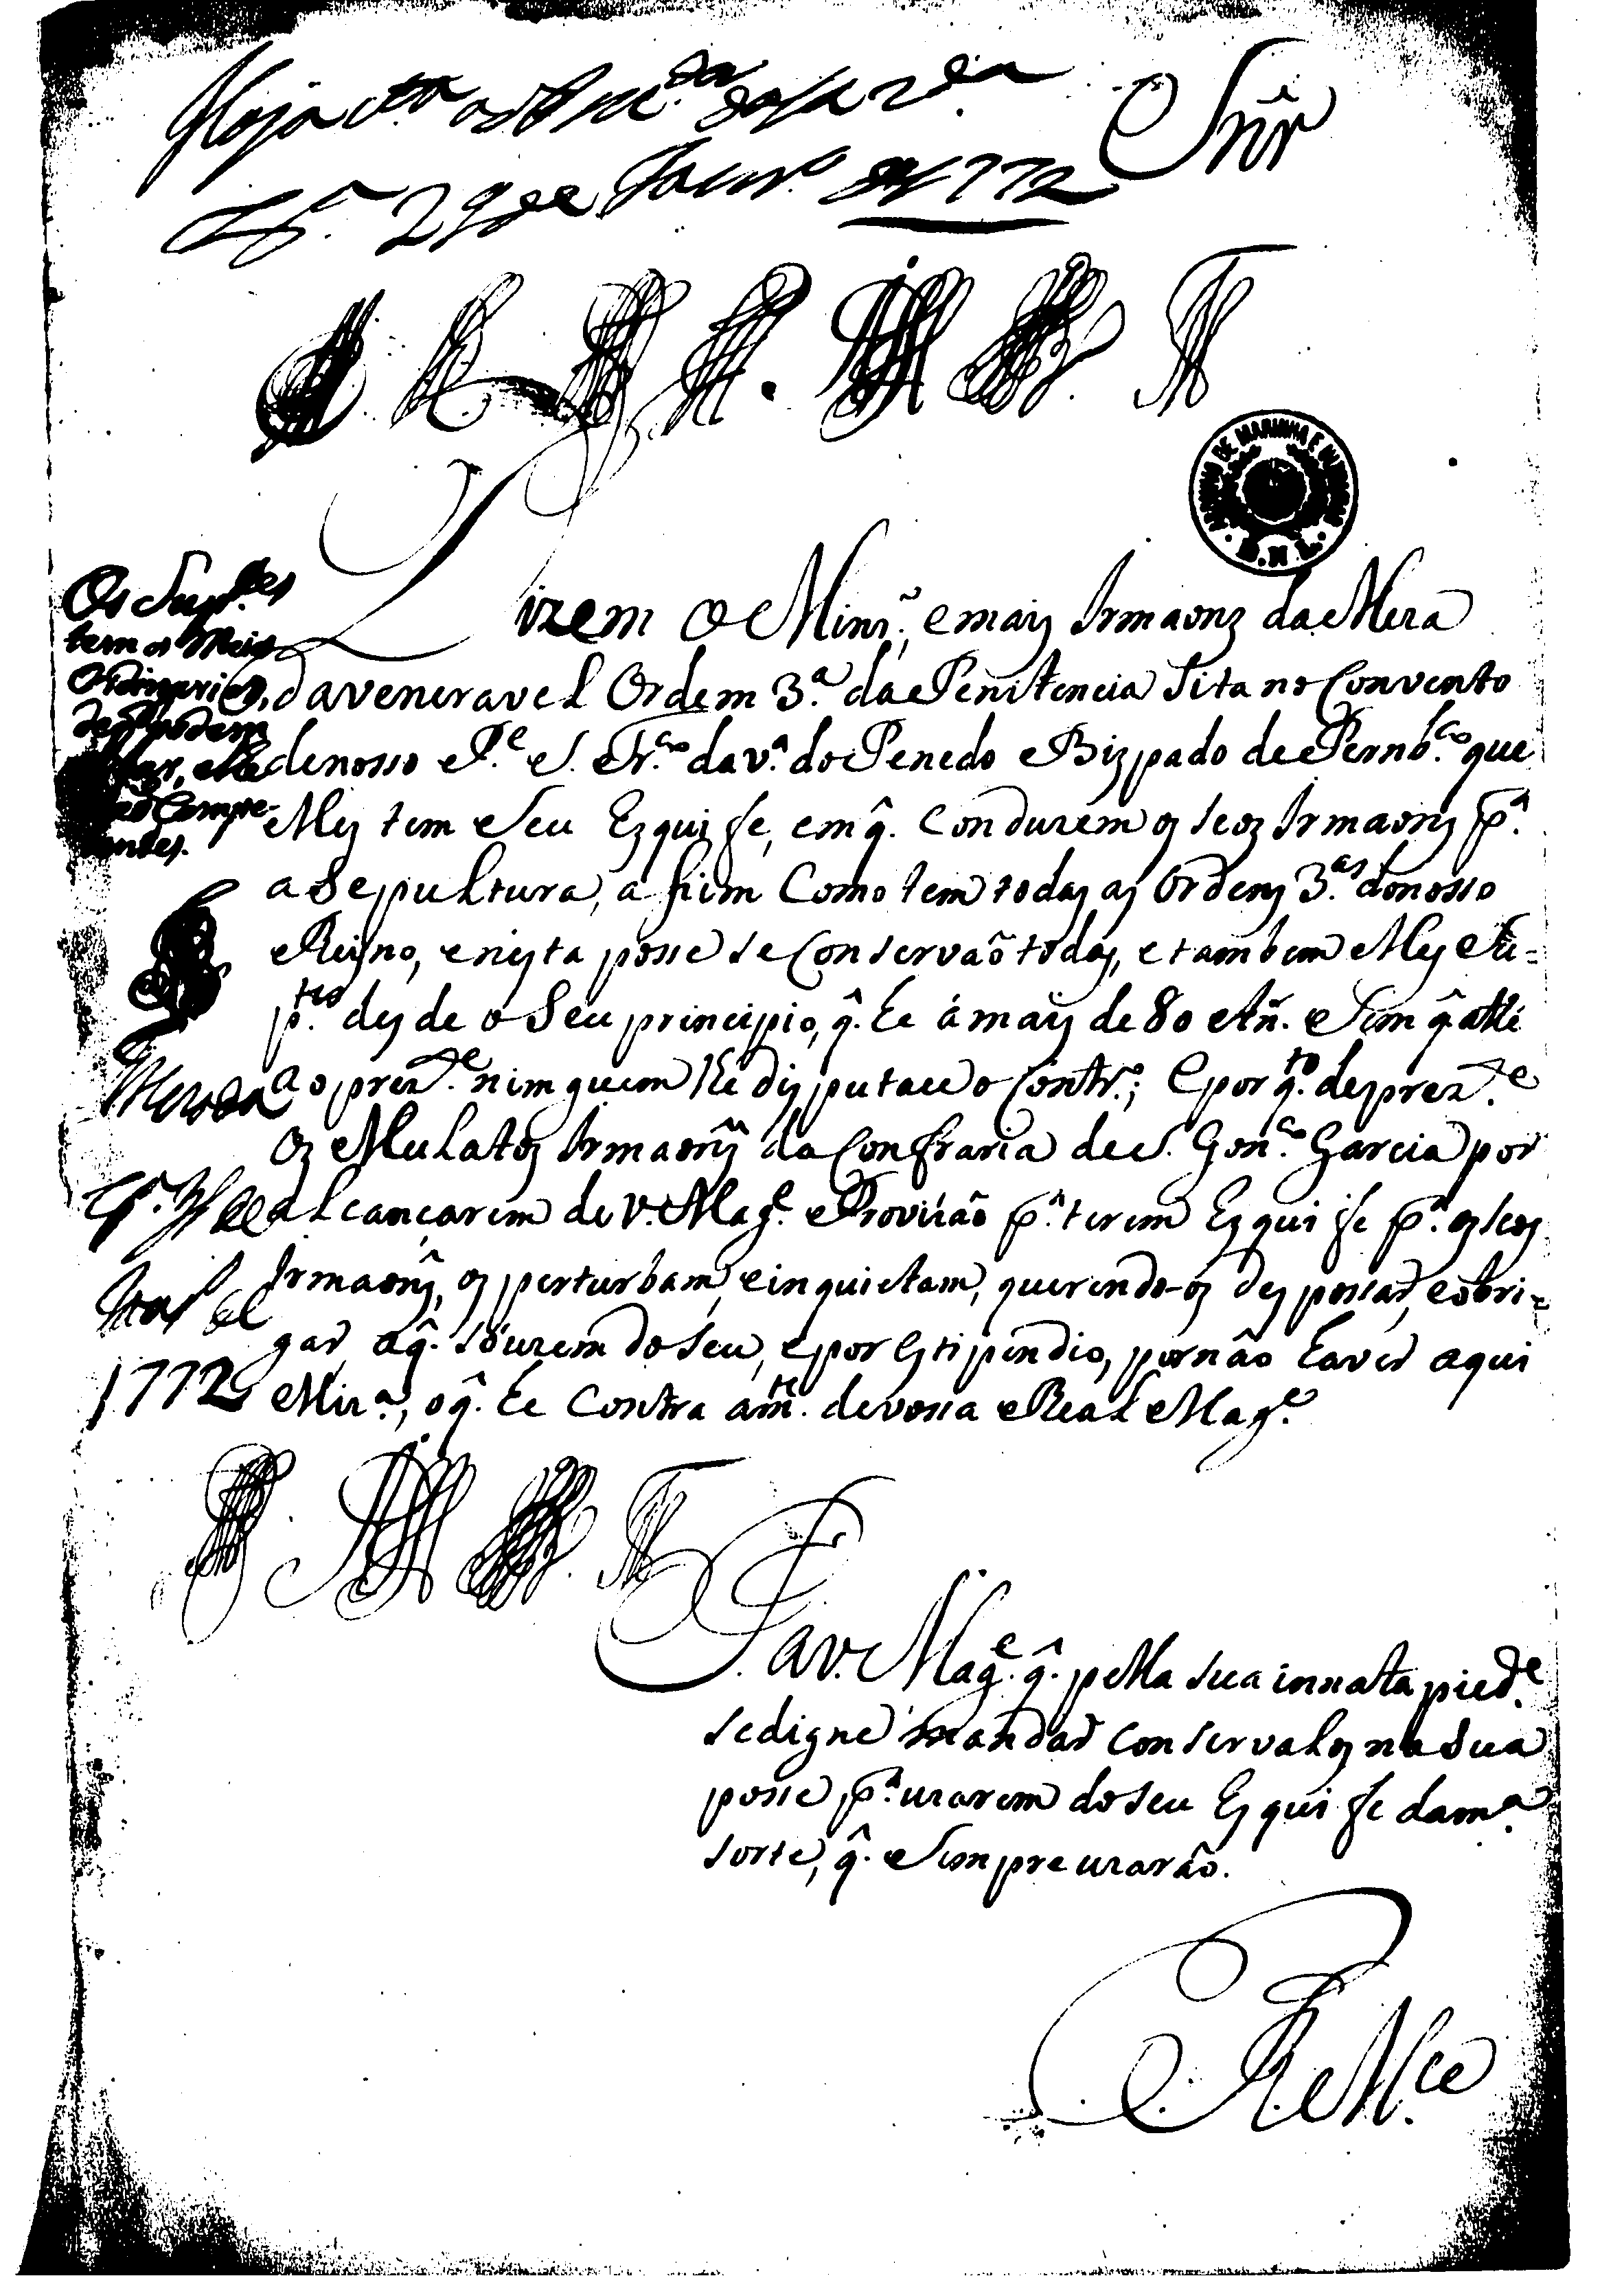 Haja v.ta o
Lx.ª 29 de Janr.º de 1772
Snr̃
ARQUIVO DE MARINHA E ULTRAMAR
B.N.L.
Os Sup.tes
tem os Meios
Ordinarios,
de q podem
uzar, e Me
nos Compe-
tentes.
Lx.ª
1772
Dizem o Minr.º, e mais Irmaons da Meza
da veneravel Ordem 3.ª da Penitencia Sita no Convento
de nosso P.e S. Fr.co da v.ª do Penedo Bizpado de Pernb.co que
elles tem seu Ezquife, em q̂. Conduzem os seos Irmaons p.ª
a Sepultura, assim Como tem todas as Ordens 3.as do nosso
Reyno, e nesta posse se Conservaõ todas, e tambem elles Su-
p.tes desde o seu principio, q̂. he á mais de 80 Añ. sem q̂ athe
ao prez.te nimguem lhe disputace o Contr.º; e por q.to de prez.te
os Mulatos Irmaons da Confraria de S. Gon.co Garcia por
alcançarem de V. Mag.e Provizão p.ª terem Ezquife p.ª os seos
Irmaons, os perturbam, e inquietam, querendo-os despossar, e obri-
gar a q̂. se uzem do seu, e por estipendio, por não haver aqui
Miz.ª, o q̂. he Contra a m.te de vossa Real Mag.e
P. a V. Mag.e q̂. pella sua innata pied.e
se digne mandar conservalos na sua
posse p.ª uzarem do seu Ezquife da m.ª
sorte, q̂. sempre uzarão.
E R. M.ce